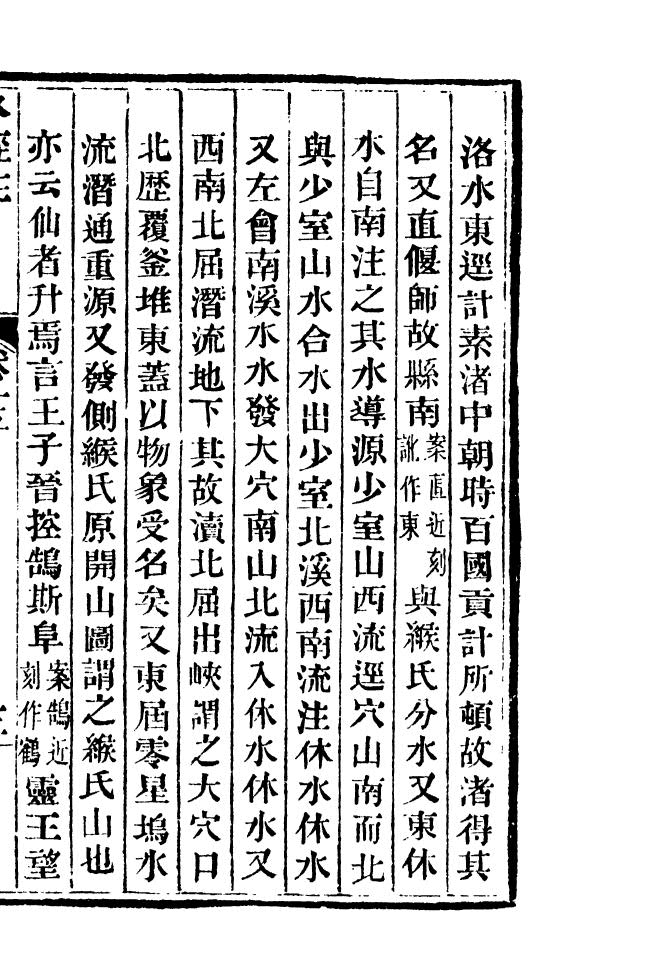 洛水東逕計素渚中朝時百國貢計所頓故渚得其
名又直偃師故縣南案直近刻訛作東與緱氏分水又東休
水自南注之其水導源少室山西流逕穴山南而北
與少室山水合水出少室北溪西南流注休水休水
又左會南溪水水發大穴南山北流入休水休水又
西南北屈潛流地下其故瀆北屈出峽謂之大穴口
北歷覆釜堆東蓋以物象受名矣又東屆零星塢水
流潛通重源又發側緱氏原開山圖謂之緱氏山也
亦云仙者升焉言王子晉控鵠斯阜案鵠近刻作鶴靈王望